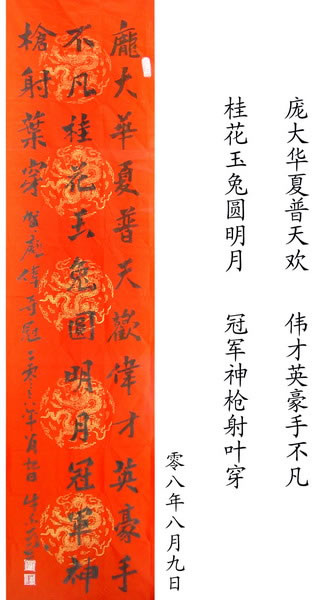 庞大华夏普天欢 伟才英豪手不凡
桂花玉兔圆明月 冠军神枪射叶穿
零八年八月九日
龐大華夏普天歡偉才英豪手
不凡桂花玉兔圓明月冠軍神
槍射葉穿 賀龐偉奪冠